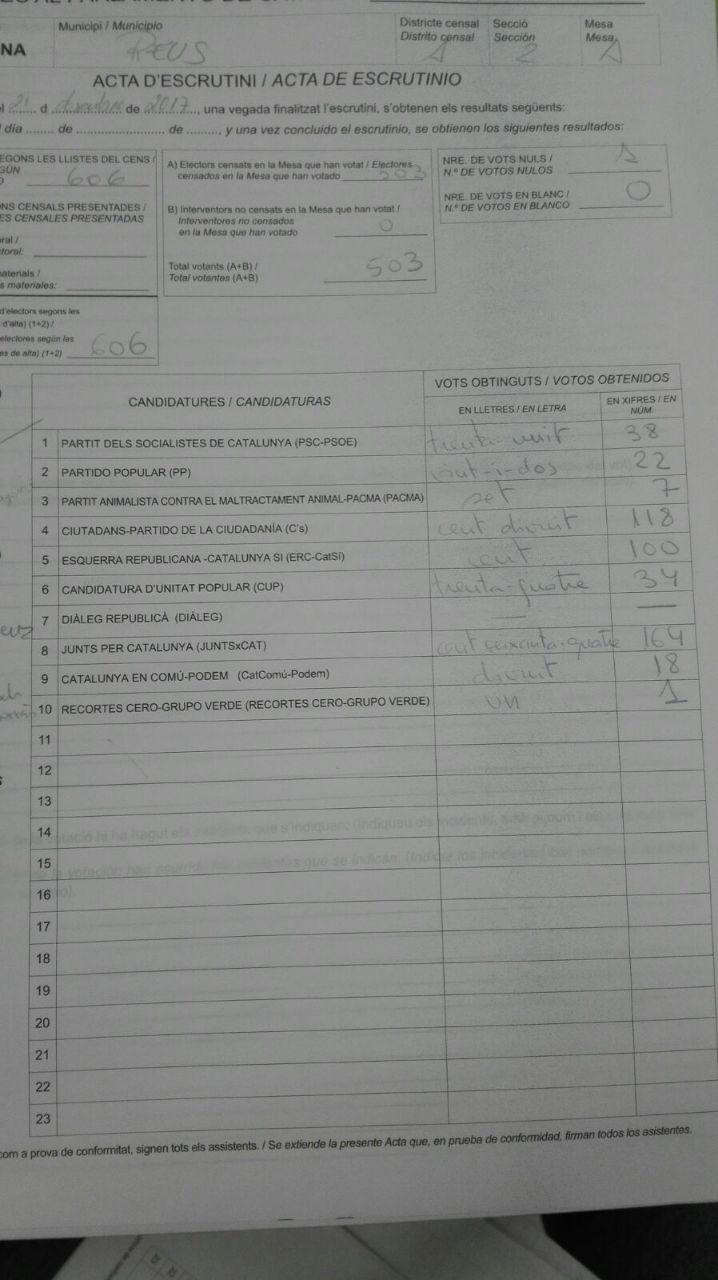 Municipi / Municipio
REUS
Districte censal
Distrito censal
1
Secció
Sección
2
Mesa
Mesa
A
NA
ACTA D'ESCRUTINI / ACTA DE ESCRUTINIO
21 d desembre de 2017, una vegada finalitzat l'escrutini, s'obtenen els resultats següents:
día ........ de ........................ de ........, y una vez concluido el escrutinio, se obtienen los siguientes resultados:
EGONS LES LLISTES DEL CENS /
GÚN
606
NS CENSALS PRESENTADES /
ES CENSALES PRESENTADAS
oral /
ctoral:
materials /
s materiales:
d'electors segons les
d'alta) (1+2) /
electores según las
es de alta) (1+2) 606
A) Electors censats en la Mesa que han votat / Electores
censados en la Mesa que han votado 503
B) Interventors no censats en la Mesa que han votat /
Interventores no censados
en la Mesa que han votado 0
Total votants (A+B) /
Total votantes (A+B) 503
NRE. DE VOTS NULS /
N.º DE VOTOS NULOS 1
NRE. DE VOTS EN BLANC /
N.º DE VOTOS EN BLANCO 0
CANDIDATURES / CANDIDATURAS
VOTS OBTINGUTS / VOTOS OBTENIDOS
EN LLETRES / EN LETRA
EN XIFRES / EN
NÚM.
1 PARTIT DELS SOCIALISTES DE CATALUNYA (PSC-PSOE) trenta-vuit 38
2 PARTIDO POPULAR (PP) vint-i-dos 22
3 PARTIT ANIMALISTA CONTRA EL MALTRACTAMENT ANIMAL-PACMA (PACMA) set 7
4 CIUTADANS-PARTIDO DE LA CIUDADANÍA (C's) cent divuit 118
5 ESQUERRA REPUBLICANA -CATALUNYA SI (ERC-CatSí) cent 100
6 CANDIDATURA D'UNITAT POPULAR (CUP) trenta-quatre 34
7 DIÀLEG REPUBLICÀ (DIÀLEG) — —
8 JUNTS PER CATALUNYA (JUNTSxCAT) cent seixanta-quatre 164
9 CATALUNYA EN COMÚ-PODEM (CatComú-Podem) divuit 18
10 RECORTES CERO-GRUPO VERDE (RECORTES CERO-GRUPO VERDE) un 1
11
12
13
14
15
16
17
18
19
20
21
22
23
com a prova de conformitat, signen tots els assistents. / Se extiende la presente Acta que, en prueba de conformidad, firman todos los asistentes.